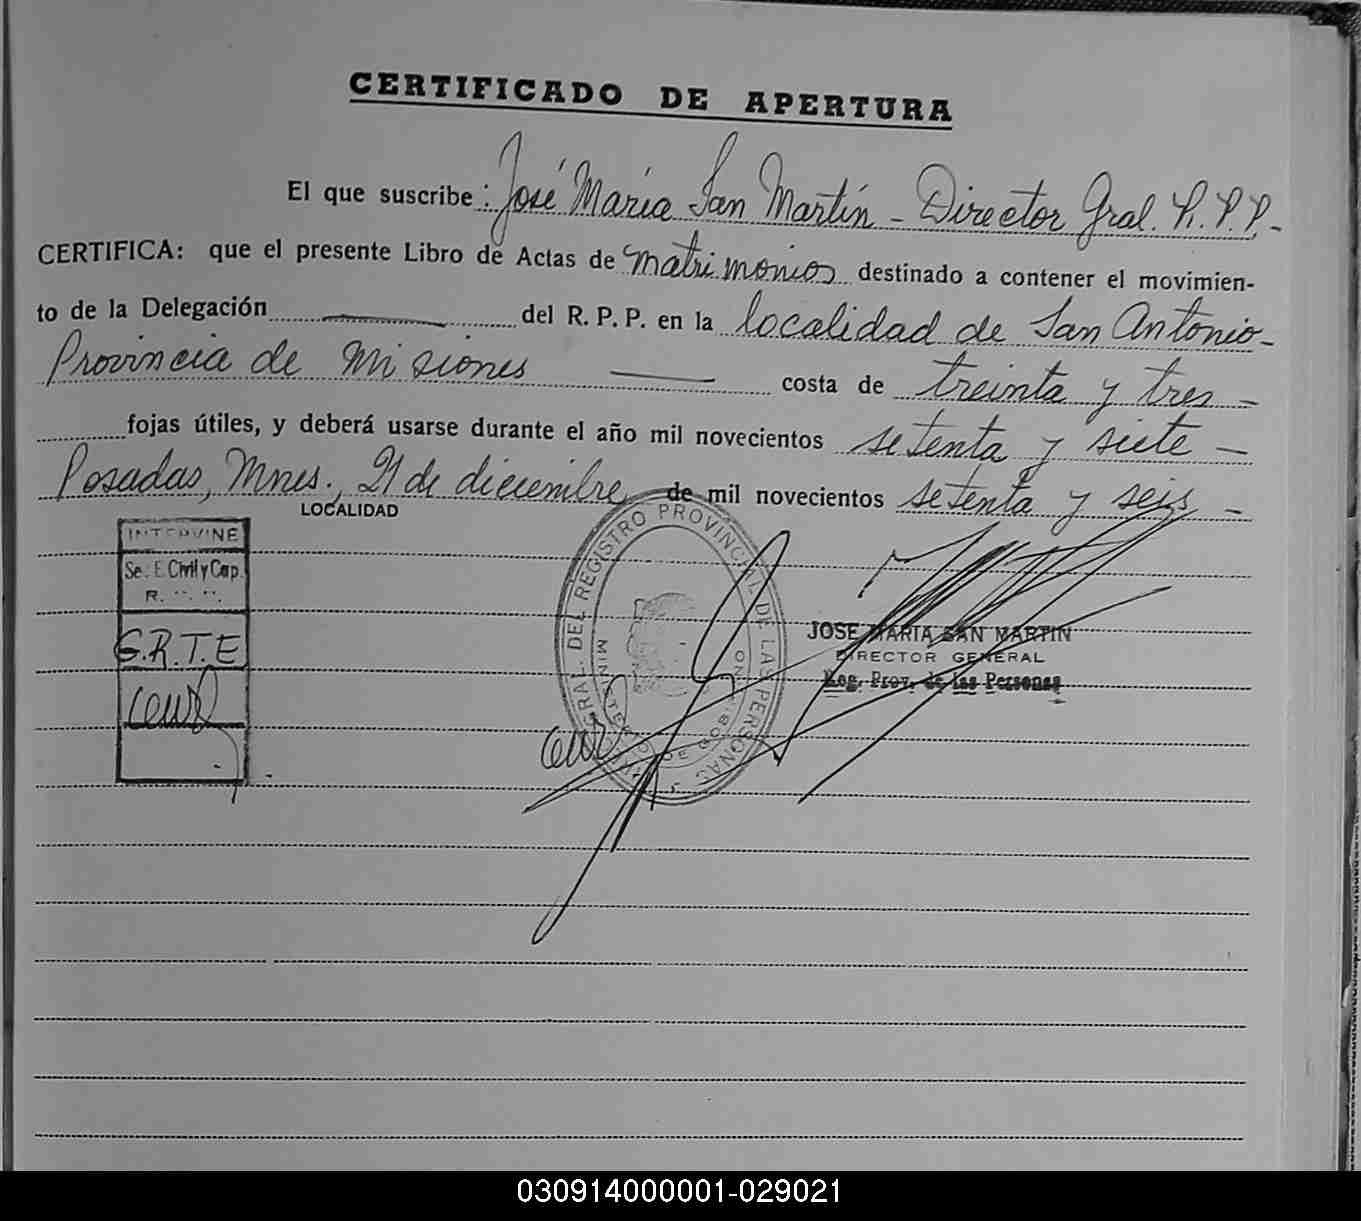 CERTIFICADO DE APERTURA
El que suscribe: José María San Martín - Director Gral. R.P.P.-
CERTIFICA: que el presente Libro de Actas de matrimonios destinado a contener el movimien-
to de la Delegación del R. P. P. en la localidad de San Antonio-
Provincia de Misiones costa de treinta y tres -
fojas útiles, y deberá usarse durante el año mil novecientos setenta y siete -
Posadas, Mnes., 21 de diciembre de mil novecientos setenta y seis -
LOCALIDAD
INTERVINE
Sec. E. Civil y Cap.
G.R.T.E
GRAL. DEL REGISTRO PROVINCIAL DE LAS PERSONAS
MINISTERIO DE GOBIERNO
JOSE MARIA SAN MARTIN
DIRECTOR GENERAL
Reg. Prov. de las Personas
030914000001-029021